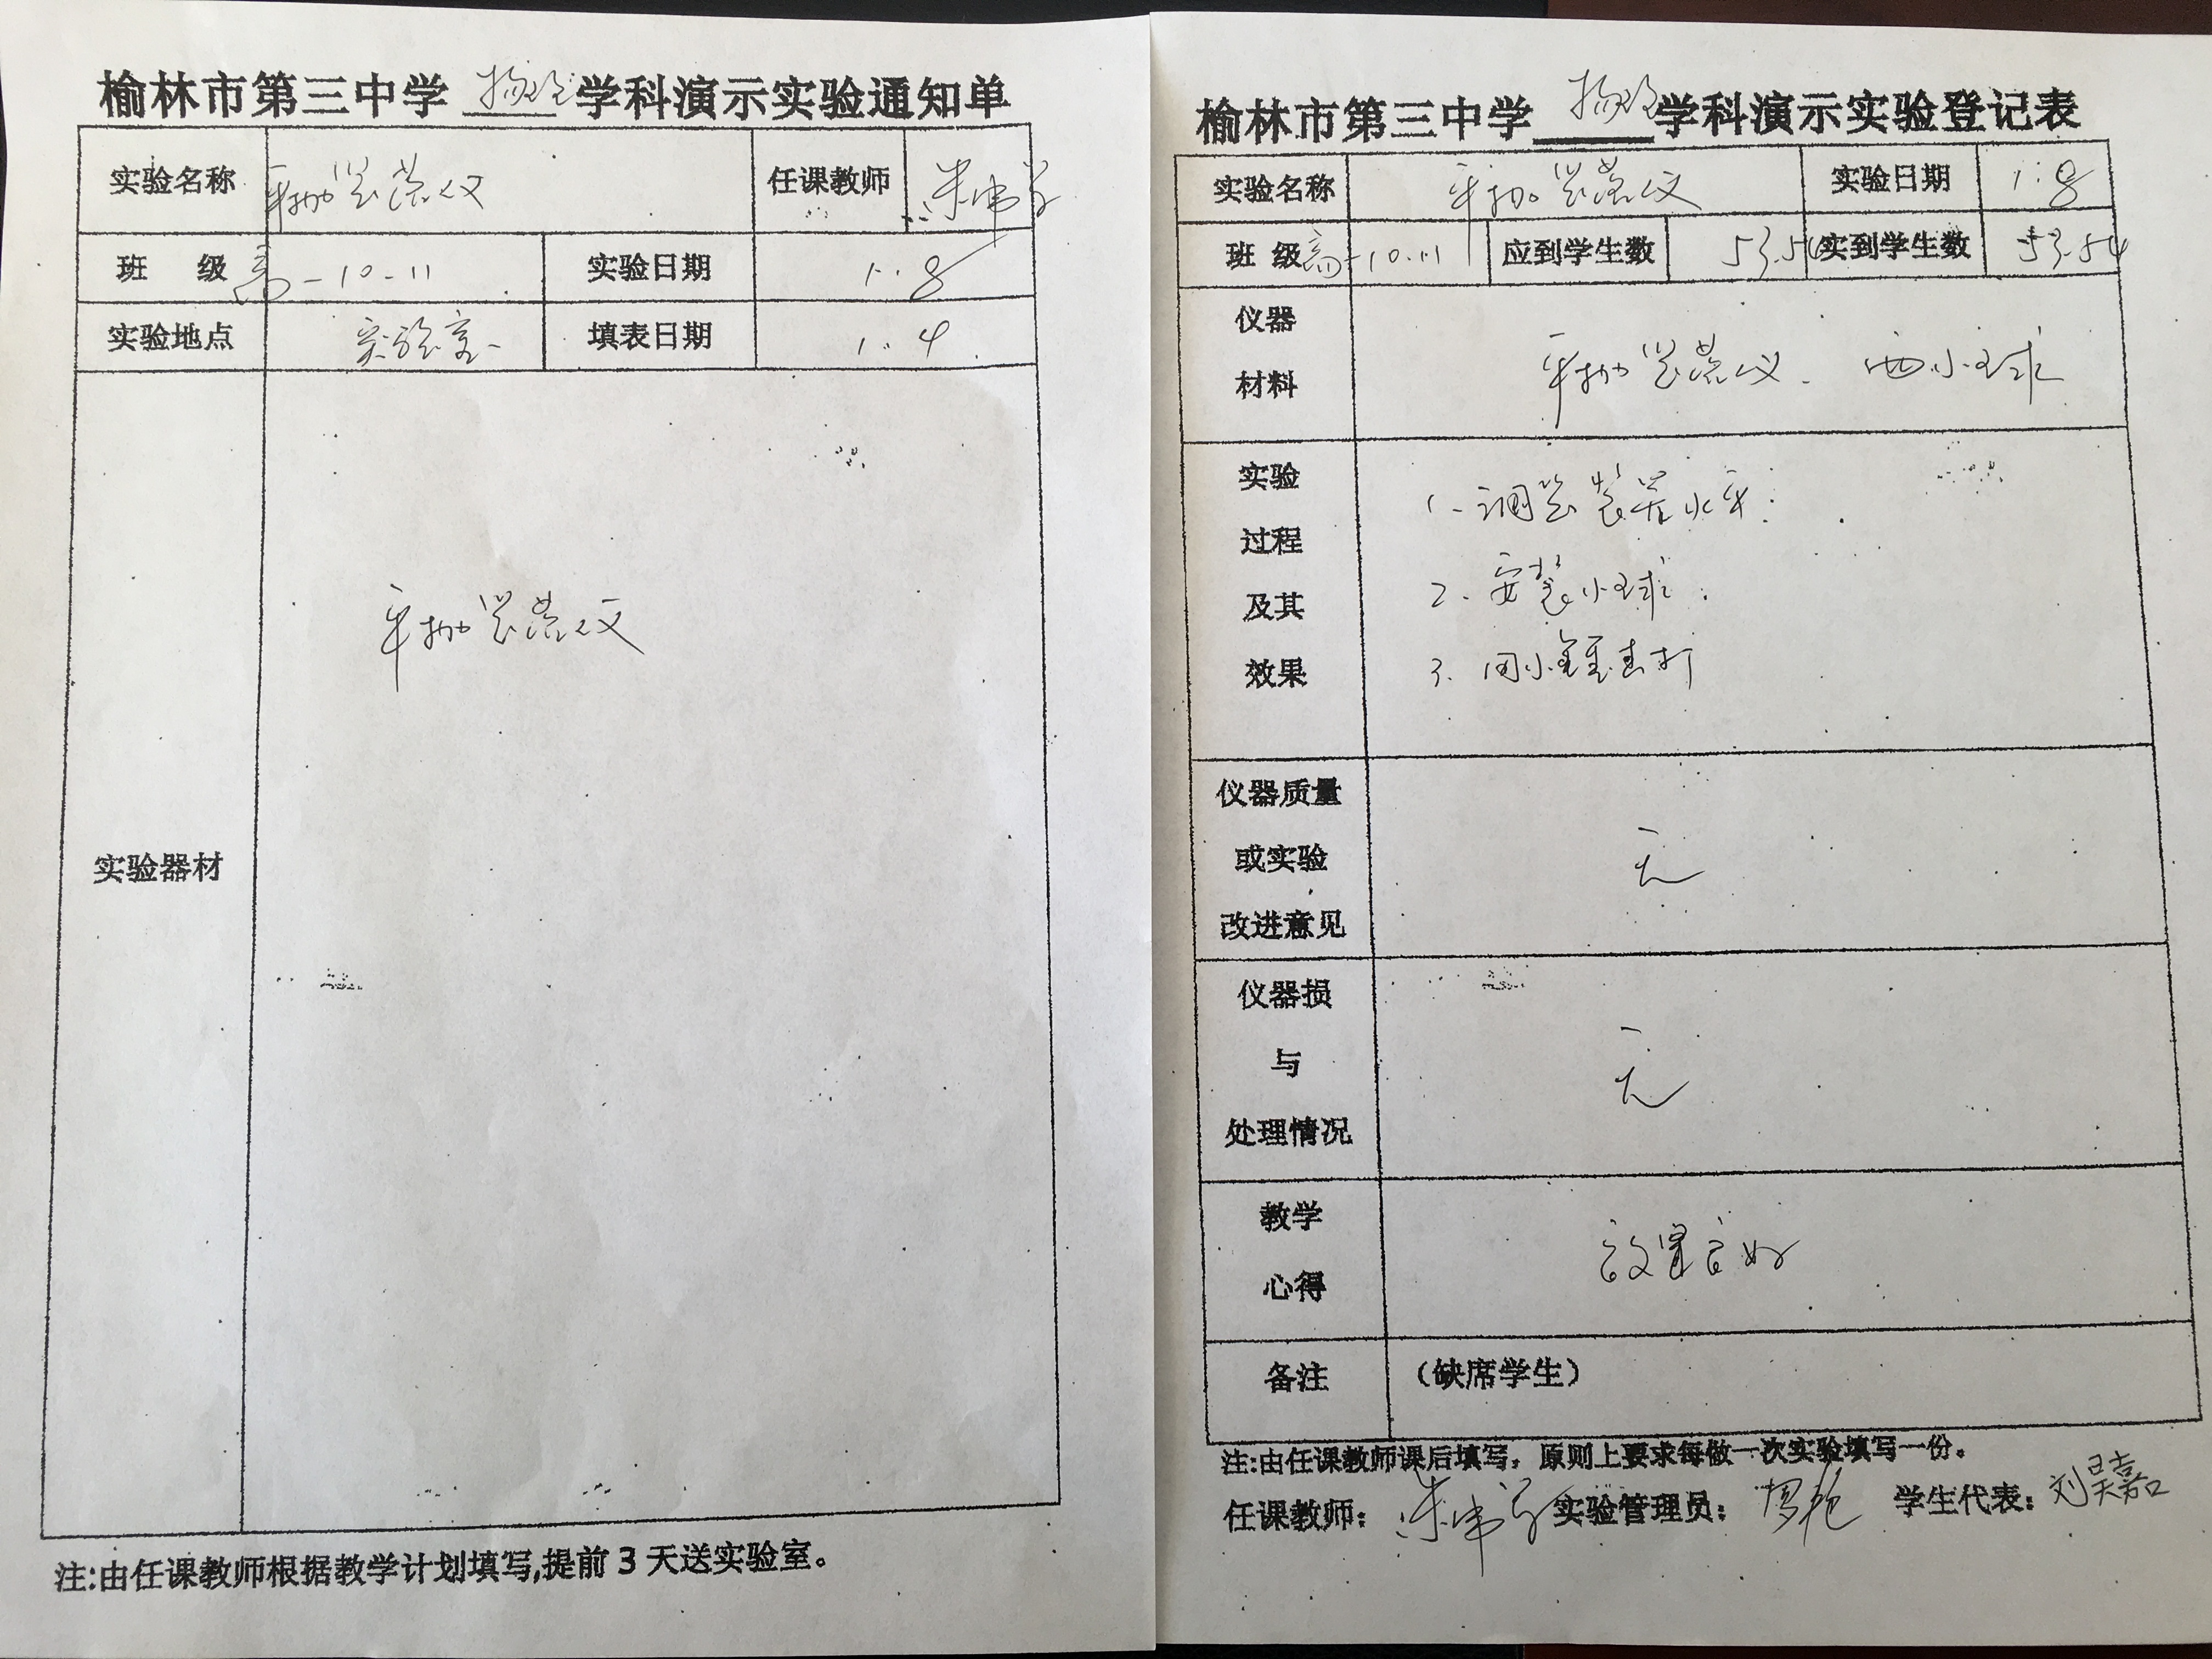 榆林市第三中学 物理 学科演示实验通知单
实验名称 平抛竖落仪 任课教师 朱伟学
班 级 高一10.11 实验日期 1.8
实验地点 实验室一 填表日期 1.4
实验器材 平抛竖落仪
注:由任课教师根据教学计划填写,提前3天送实验室。
榆林市第三中学 物理 学科演示实验登记表
实验名称 平抛竖落仪 实验日期 1.8
班 级 高一10.11 应到学生数 53.54 实到学生数 53.54
仪器
材料
平抛竖落仪、两小球
实验
过程
及其
效果
1、调竖装置水平;
2、安装小球;
3、用小锤击打
仪器质量
或实验
改进意见
无
仪器损
与
处理情况
无
教学
心得
效果良好
备注 (缺席学生)
注:由任课教师课后填写,原则上要求每做一次实验填写一份。
任课教师: 朱伟 实验管理员: 学生代表: 刘昊嘉